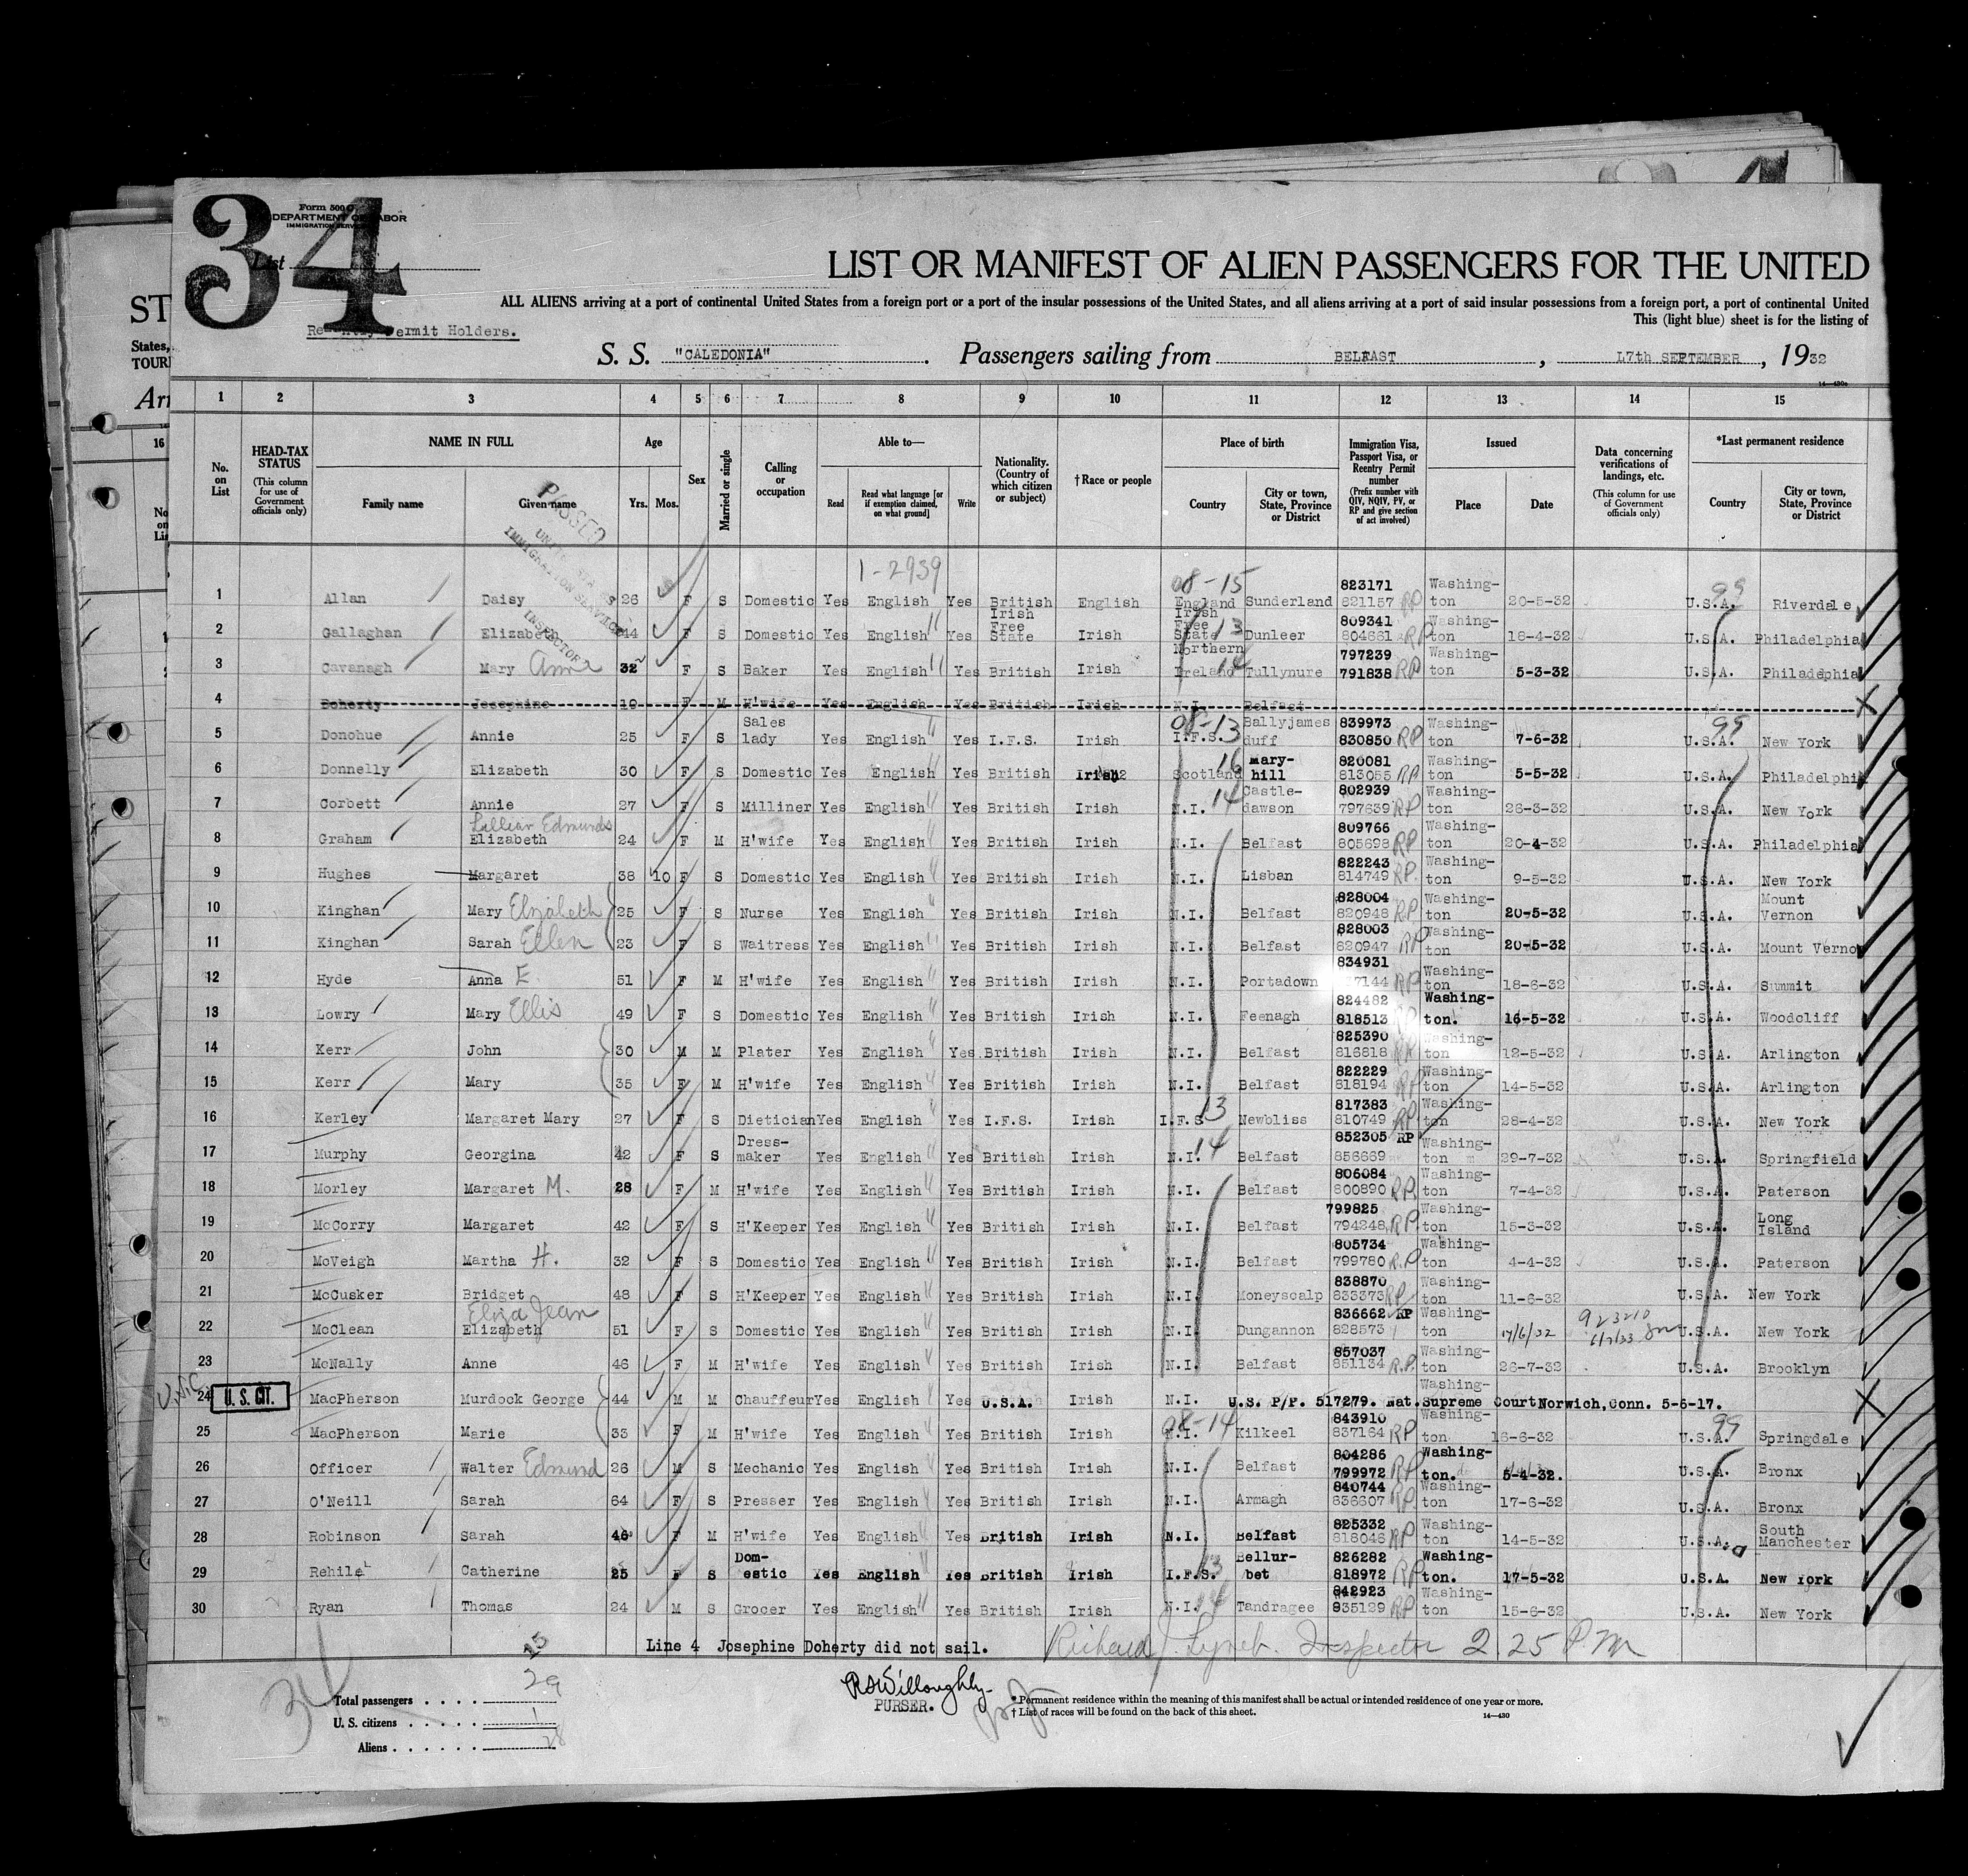 34
Form 500
DEPARTMENT OF LABOR
IMMIGRATION SERVICE
List
LIST OR MANIFEST OF ALIEN PASSENGERS FOR THE UNITED
ST
ALL ALIENS arriving at a port of continental United States from a foreign port or a port of the insular possessions of the United States, and all aliens arriving at a port of said insular possessions from a foreign port, a port of continental United
This (light blue) sheet is for the listing of
Reentry Permit Holders.
States,
TOURI
Arr
S. S. "CALEDONIA". Passengers sailing from BELFAST, 17th SEPTEMBER, 1932
14—430a
1 2 3 4 5 6 7 8 9 10 11 12 13 14 15
16
No. on List
HEAD-TAX STATUS (This column for use of Government officials only)
NAME IN FULL Family name Given name
Age Yrs. Mos.
Sex
Married or single
Calling or occupation
Able to— Read Read what language [or if exemption claimed, on what ground] Write
Nationality. (Country of which citizen or subject)
† Race or people
Place of birth Country City or town, State, Province or District
Immigration Visa, Passport Visa, or Reentry Permit number (Prefix number with QIV, NQIV, PV, or RP and give section of act involved)
Issued Place Date
Data concerning verifications of landings, etc. (This column for use of Government officials only)
*Last permanent residence Country City or town, State, Province or District
PASSED
UNITED STATES
IMMIGRATION SERVICE
INSPECTOR
1-2939
08-15
99
1 Allan Daisy 26 F S Domestic Yes English Yes British English England Sunderland 823171 821157 RP Washington 20-5-32 U.S.A. Riverdale
2 Gallaghan Elizabeth 44 F S Domestic Yes English Yes Irish Free State Irish Irish Free State 13 Dunleer 809341 804661 RP Washington 18-4-32 U.S.A. Philadelphia
3 Cavanagh Mary Anne 32 F S Baker Yes English Yes British Irish Northern Ireland 14 Tullynure 797239 791838 RP Washington 5-3-32 U.S.A. Philadephia
4 Doherty Josephine 19 F M H'wife Yes English Yes British Irish N.I. Belfast X
5 Donohue Annie 25 F S Sales lady Yes English Yes I.F.S. Irish 08-13 I.F.S. Ballyjamesduff 839973 830850 RP Washington 7-6-32 99 U.S.A. New York
6 Donnelly Elizabeth 30 F S Domestic Yes English Yes British Irish Scotland 16 Mary-hill 820081 813055 RP Washington 5-5-32 U.S.A. Philadelphia
7 Corbett Annie 27 F S Milliner Yes English Yes British Irish N.I. 14 Castle-dawson 802939 797639 RP Washington 26-3-32 U.S.A. New York
8 Graham Lillian Edmunds Elizabeth 24 F M H'wife Yes English Yes British Irish N.I. Belfast 809766 805698 RP Washington 20-4-32 U.S.A. Philadelphia
9 Hughes Margaret 38 10 F S Domestic Yes English Yes British Irish N.I. Lisban 822243 814749 RP Washington 9-5-32 U.S.A. New York
10 Kinghan Mary Elizabeth 25 F S Nurse Yes English Yes British Irish N.I. Belfast 828004 820948 RP Washington 20-5-32 U.S.A. Mount Vernon
11 Kinghan Sarah Ellen 23 F S Waitress Yes English Yes British Irish N.I. Belfast 828003 820947 RP Washington 20-5-32 U.S.A. Mount Verno
12 Hyde Anna E. 51 F M H'wife Yes English Yes British Irish N.I. Portadown 834931 7144 RP Washington 18-6-32 U.S.A. Summit
13 Lowry Mary Ellis 49 F S Domestic Yes English Yes British Irish N.I. Feenagh 824482 818513 Washington. 16-5-32 U.S.A. Woodcliff
14 Kerr John 30 M M Plater Yes English Yes British Irish N.I. Belfast 825390 816818 Washington 12-5-32 U.S.A. Arlington
15 Kerr Mary 35 F M H'wife Yes English Yes British Irish N.I. Belfast 822229 818194 RP Washington 14-5-32 U.S.A. Arlington
16 Kerley Margaret Mary 27 F S Dietician Yes English Yes I.F.S. Irish I.F.S. 13 Newbliss 817383 810749 RP Washington 28-4-32 U.S.A. New York
17 Murphy Georgina 42 F S Dress-maker Yes English Yes British Irish N.I. 14 Belfast 852305 RP 856669 Washington 29-7-32 U.S.A. Springfield
18 Morley Margaret M. 28 F M H'wife Yes English Yes British Irish N.I. Belfast 806084 800890 RP Washington 7-4-32 U.S.A. Paterson
19 McCorry Margaret 42 F S H'Keeper Yes English Yes British Irish N.I. Belfast 799825 794248 RP Washington 15-3-32 U.S.A. Long Island
20 McVeigh Martha H. 32 F S Domestic Yes English Yes British Irish N.I. Belfast 805734 799780 RP Washington 4-4-32 U.S.A. Paterson
21 McCusker Bridget 48 F S H'Keeper Yes English Yes British Irish N.I. Moneyscalp 838870 833373 RP Washington 11-6-32 U.S.A. New York
22 McClean Eliza Jean Elizabeth 51 F S Domestic Yes English Yes British Irish N.I. Dungannon 836662 RP 828573 Washington 17/6/32 923210 U.S.A. New York
23 McNally Anne 46 F M H'wife Yes English Yes British Irish N.I. Belfast 857037 851134 R.P. Washington 26-7-32 U.S.A. Brooklyn
24 U. S. CIT. MacPherson Murdock George 44 M M Chauffeur Yes English Yes U.S.A. Irish N.I. U.S. P/P. 517279. Nat. Supreme Court Norwich, Conn. 5-6-17. X
25 MacPherson Marie 33 F M H'wife Yes English Yes British Irish 08-14 N.I. Kilkeel 843910 837164 RP Washington 16-6-32 99 U.S.A. Springdale
26 Officer Walter Edmund 26 M S Mechanic Yes English Yes British Irish N.I. Belfast 804286 799972 RP Washington. 5-4-32. U.S.A. Bronx
27 O'Neill Sarah 64 F S Presser Yes English Yes British Irish N.I. Armagh 840744 836607 RP Washington 17-6-32 U.S.A. Bronx
28 Robinson Sarah 46 F M H'wife Yes English Yes British Irish N.I. Belfast 825332 818046 RP Washington 14-5-32 U.S.A. South Manchester
29 Rehill Catherine 25 F S Dom-estic Yes English Yes British Irish I.F.S. 13 Bellur-bet 826282 818972 RP Washington. 17-5-32 U.S.A. New York
30 Ryan Thomas 24 M S Grocer Yes English Yes British Irish N.I. 14 Tandragee 842923 835129 RP Washington 15-6-32 U.S.A. New York
Line 4 Josephine Doherty did not sail. Richard Lynch. Inspector 2.25 P.M
34
Total passengers 29
U. S. citizens 1
Aliens 28
RSWilloughby
PURSER.
* Permanent residence within the meaning of this manifest shall be actual or intended residence of one year or more.
† List of races will be found on the back of this sheet.
14—430